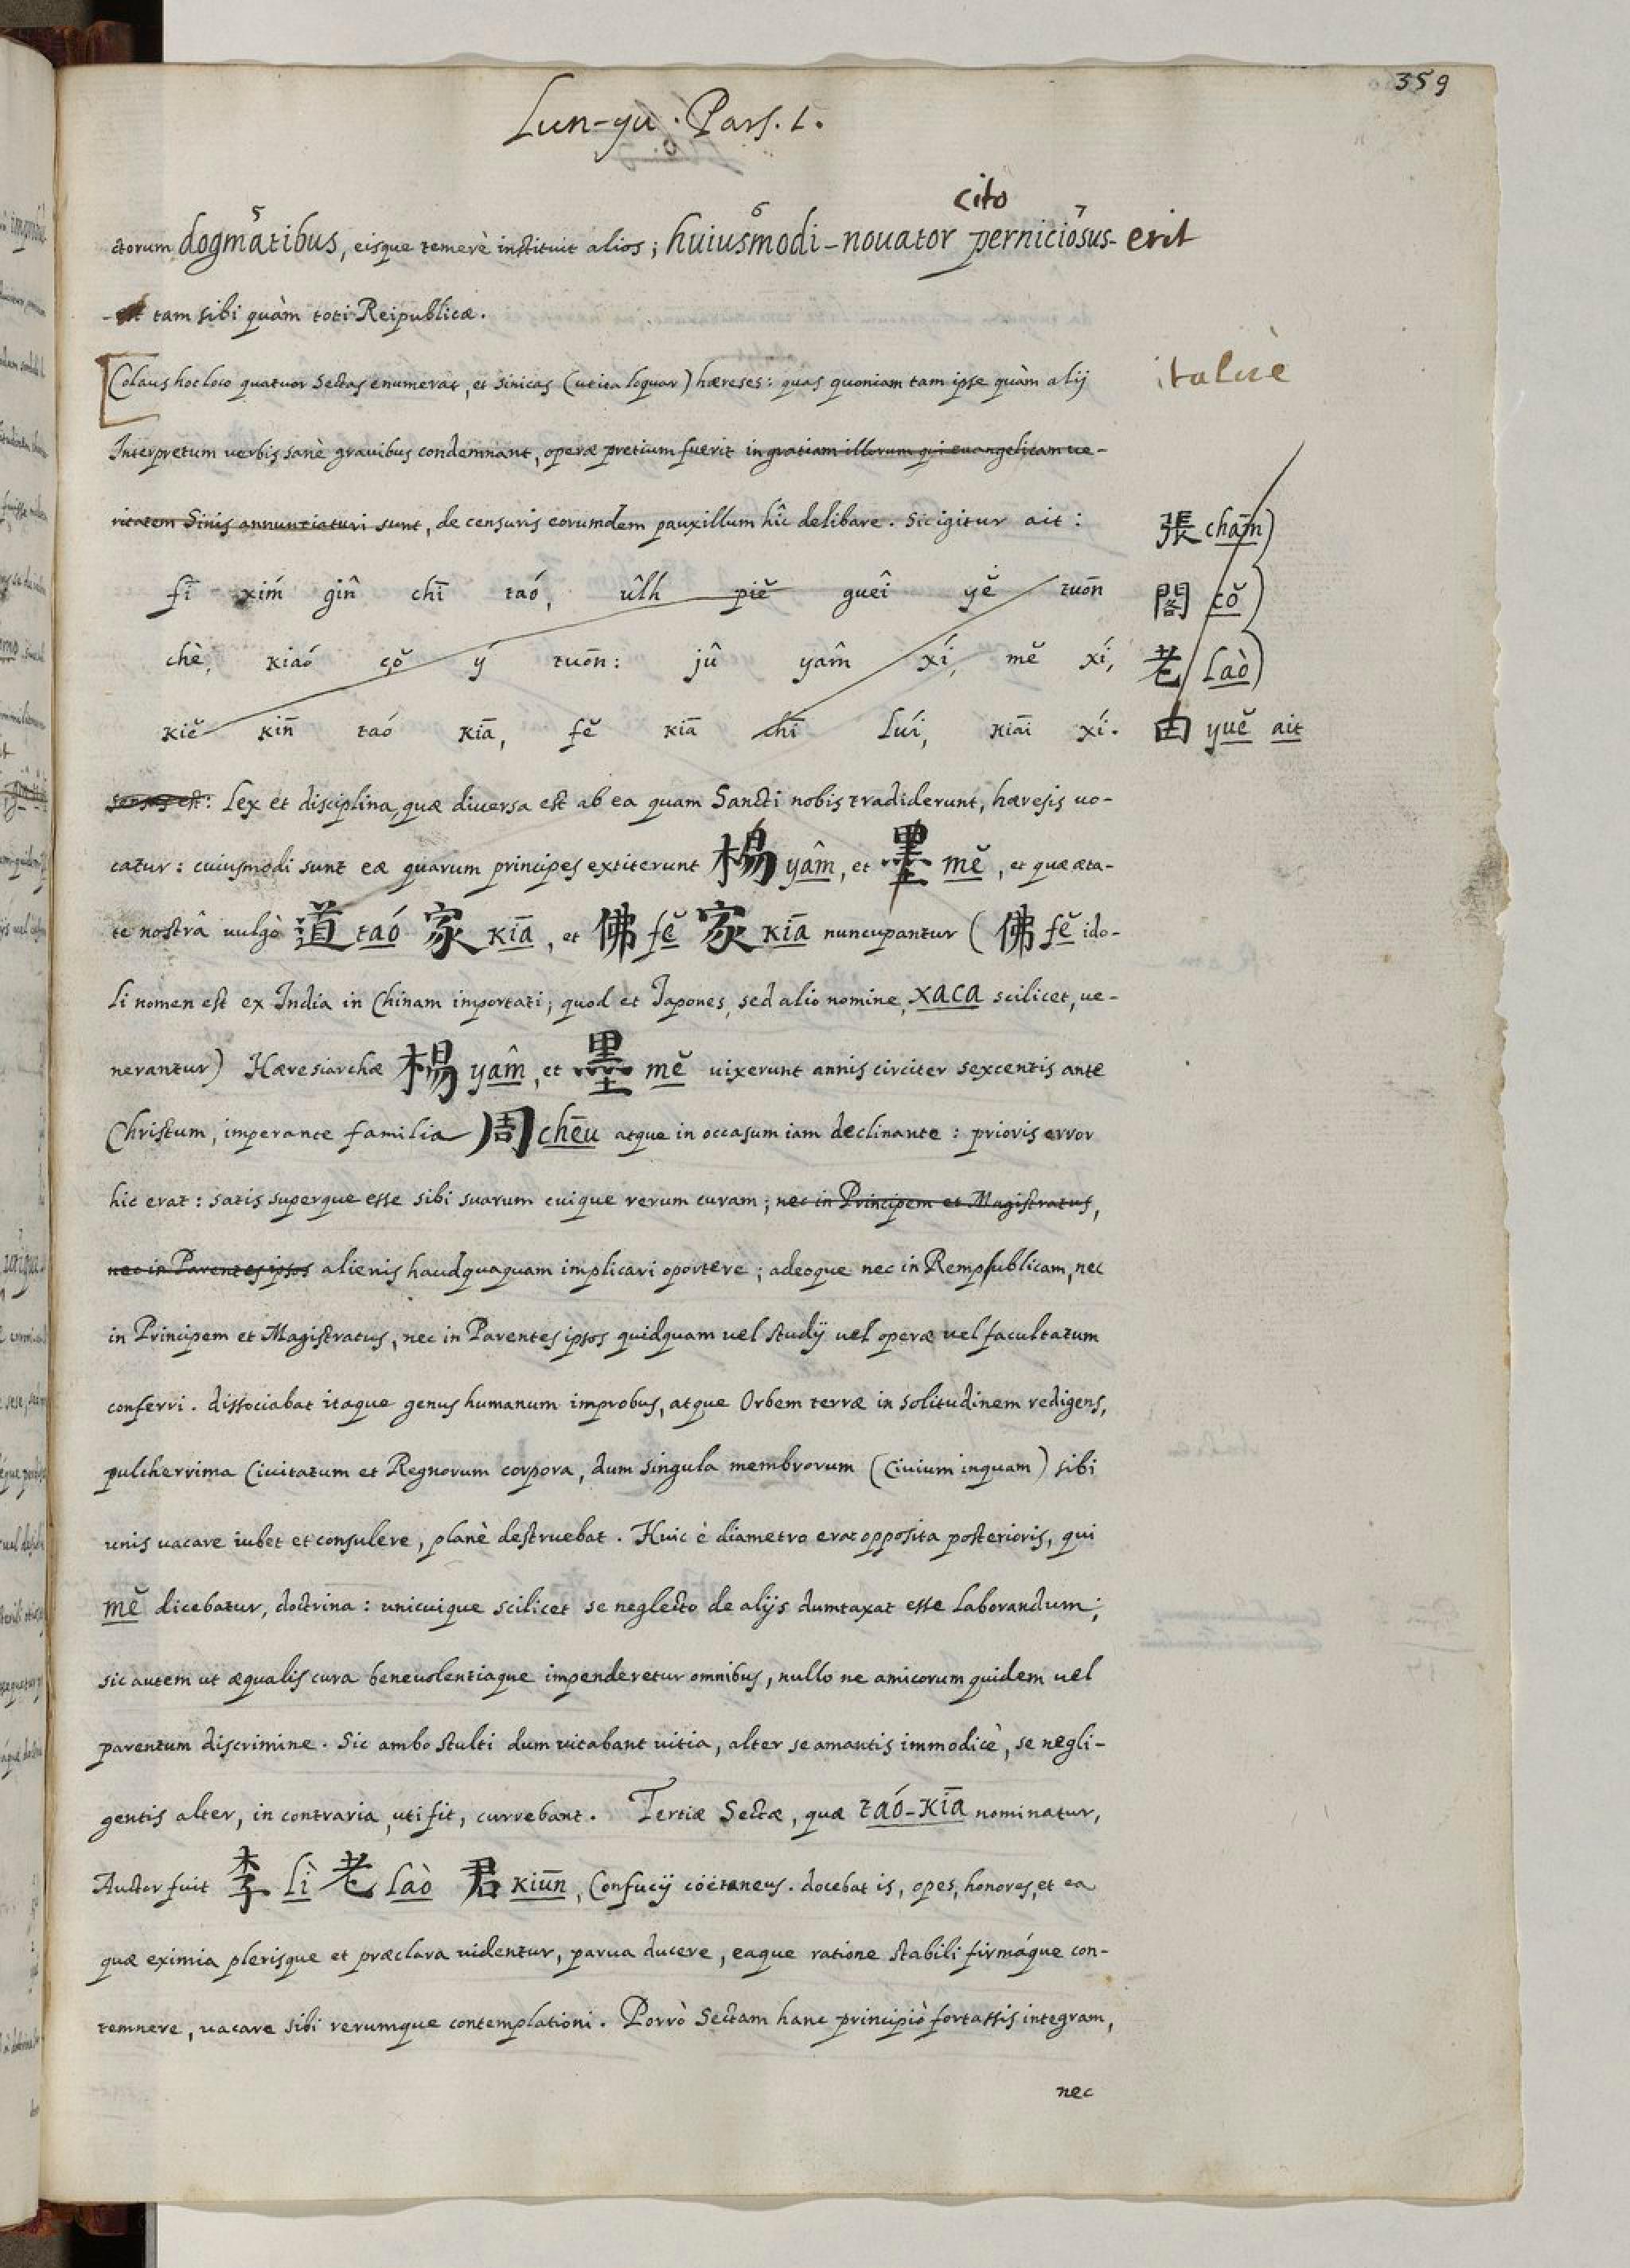 359
Lun-yu. Pars. 1.
cito
5 6 7
ctorum dogmatibus, eisque temerè instituit alios; huiusmodi-nouator perniciosus- erit
- est tam sibi quàm toti Reipublicæ.
Colaus hoc loco quatuor Sectas enumerat, et sinicas (ut ita loquar) hæreses: quas quoniam tam ipse quàm alij
italicè
Interpretum verbis sanè grauibus condemnant, operæ pretium fuerit in gratiam illorum qui euangelicam ue-
ritatem Sinis annuntiaturi sunt, de censuris eorumdem pauxillum hîc delibare. Sic igitur ait:
張 chām)
fī xím gîn chī taó, ûlh piĕ gueî yĕ tuōn
閣 cŏ)
chè, kiaó çŏ ý tuōn: jû yam̂ xí, mĕ xí,
老 laò)
kiĕ kin̄ taó kiā, fĕ kiā chī luí, kiāi xí.
曰 yuĕ ait
sensus est: Lex et disciplina, quæ diuersa est ab ea quam Sancti nobis tradiderunt, hæresis uo-
catur: cuiusmodi sunt eæ quarum principes extiterunt 楊 yam̂, et 墨 mĕ, et quæ æta-
te nostrâ uulgò 道 taó 家 kiā, et 佛 fĕ 家 kiā nuncupantur (佛 fĕ ido-
li nomen est ex India in Chinam importati; quod et Japones, sed alio nomine, xaca scilicet, ue-
nerantur) Hæresiarchæ 楊 yam̂, et 墨 mĕ uixerunt annis circiter sexcentis ante
Christum, imperante familia 周 chēu atque in occasum iam declinante: prioris error
hic erat: satis superque esse sibi suarum cuique rerum curam; nec in Principem et Magistratus,
nec in Parentes ipsos alienis haudquaquam implicari oportere; adeoque nec in Rempublicam, nec
in Principem et Magistratus, nec in Parentes ipsos quidquam uel studij uel operæ uel facultatum
conferri. dissociabat itaque genus humanum improbus, atque Orbem terræ in solitudinem redigens,
pulcherrima Ciuitatum et Regnorum corpora, dum singula membrorum (Ciuium inquam) sibi
unis uacare iubet et consulere, planè destruebat. Huic è diametro erat opposita posterioris, qui
mĕ dicebatur, doctrina: unicuique scilicet se neglecto de alijs dumtaxat esse laborandum;
sic autem ut æqualis cura beneuolentiaque impenderetur omnibus, nullo ne amicorum quidem uel
parentum discrimine. Sic ambo stulti dum uitabant uitia, alter se amantis immodicè, se negli-
gentis alter, in contraria, uti fit, currebant. Tertiæ Sectæ, quæ taó-kiā nominatur,
Auctor fuit 李 lì 老 laò 君 kiūn, Confucij coëtaneus. docebat is, opes, honores, et ea
quæ eximia plerisque et præclara uidentur, parua ducere, eaque ratione stabili firmáque con-
temnere, uacare sibi rerumque contemplationi. Porrò Sectam hanc principiò fortassis integram,
nec